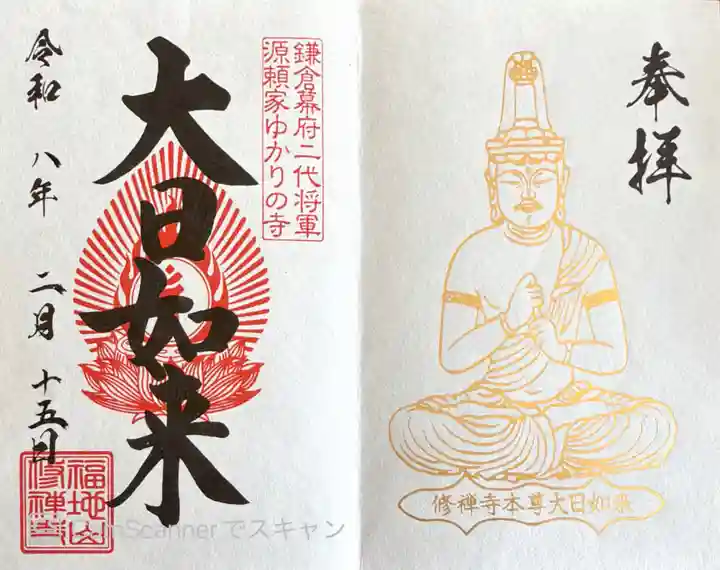 奉拝
修禅寺本尊大日如来
鎌倉幕府二代将軍
源頼家ゆかりの寺
大日如来
令和 八年 二月 十五日
福地山
修禅寺
Scannerでスキャン